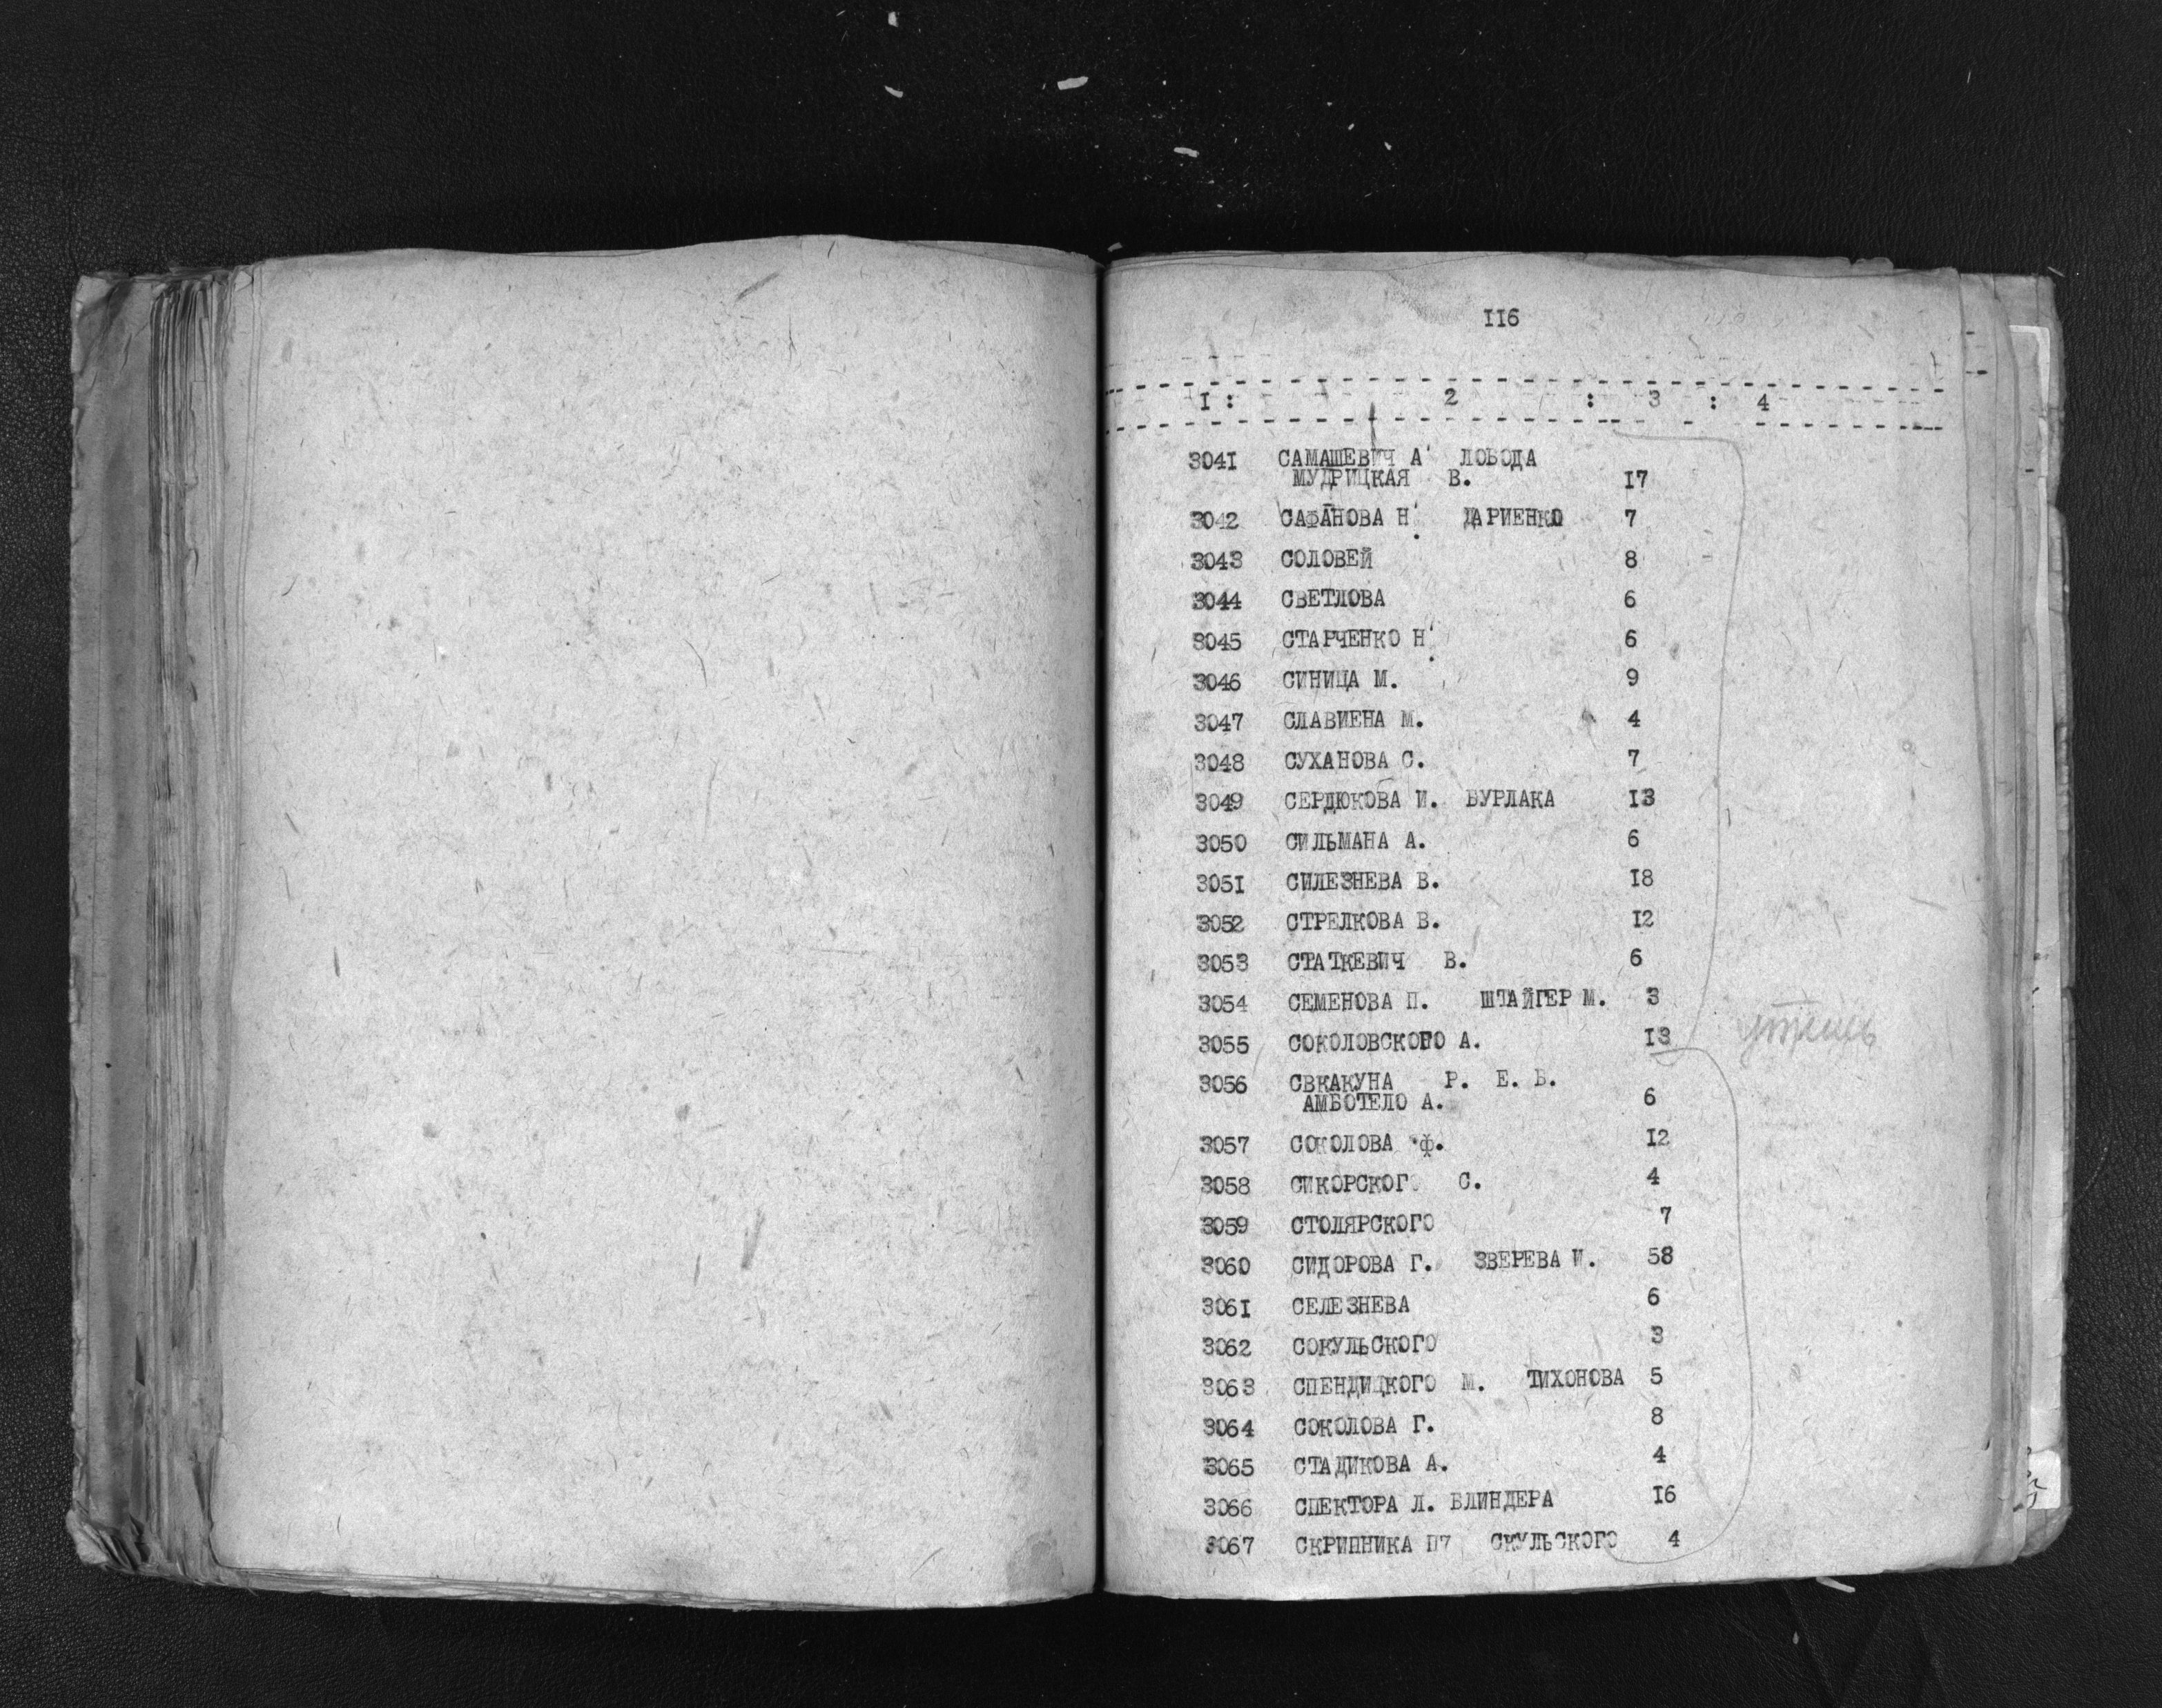 116
1 : 2 : 3 : 4
3041 САМАШЕВИЧ А. ЛОБОДА
МУДРИЦКАЯ В. 17
3042 САФАНОВА Н. ДАРИЕНКО 7
3043 СОЛОВЕЙ 8
3044 СВЕТЛОВА 6
3045 СТАРЧЕНКО Н. 6
3046 СИНИЦА М. 9
3047 СЛАВИЕНА М. 4
3048 СУХАНОВА С. 7
3049 СЕРДЮКОВА И. БУРЛАКА 13
3050 СИЛЬМАНА А. 6
3051 СИЛЕЗНЕВА В. 18
3052 СТРЕЛКОВА В. 12
3053 СТАТКЕВИЧ В. 6
3054 СЕМЕНОВА П. ШТАЙГЕР М. 3
3055 СОКОЛОВСКОГО А. 13
3056 СВКАКУНА Р. Е. Б.
АМБОТЕЛО А. 6
3057 СОКОЛОВА Ф. 12
3058 СИКОРСКОГО С. 4
3059 СТОЛЯРСКОГО 7
3060 СИДОРОВА Г. ЗВЕРЕВА И. 58
3061 СЕЛЕЗНЕВА 6
3062 СОКУЛЬСКОГО 3
3063 СПЕНДИЦКОГО М. ТИХОНОВА 5
3064 СОКОЛОВА Г. 8
3065 СТАДИКОВА А. 4
3066 СПЕКТОРА Л. БЛИНДЕРА 16
3067 СКРИПНИКА П7 СКУЛЬСКОГО 4